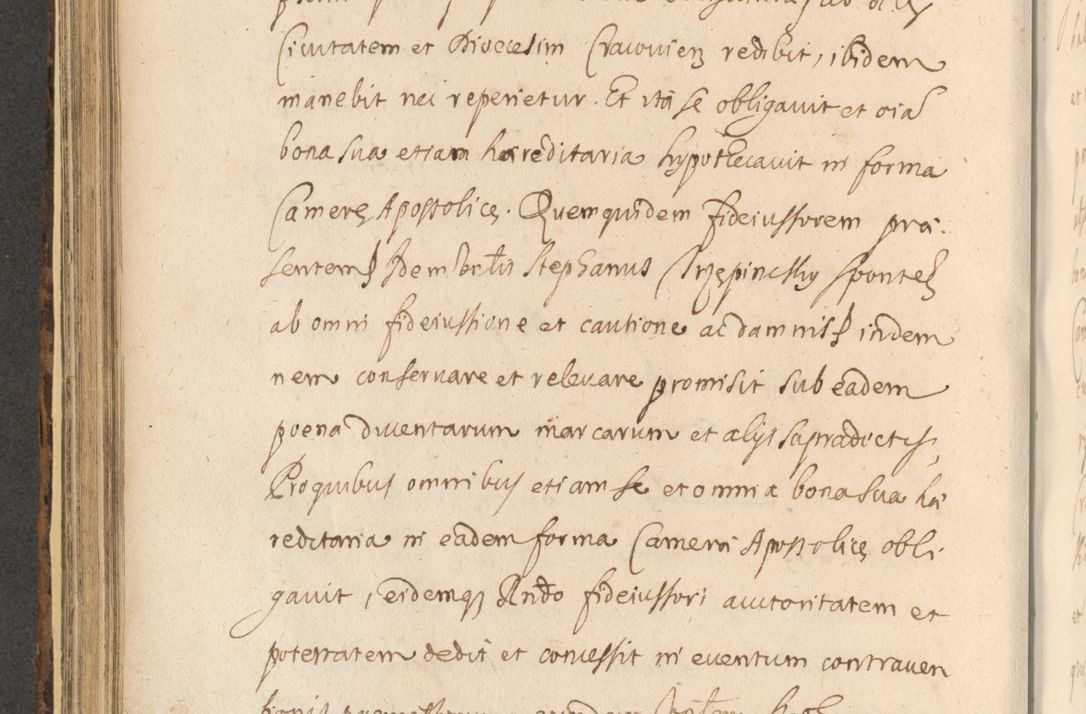 Ciuitatem et Diocesim Cracouien redibit, ibidem
manebit nec reperietur. Et ita se obligauit et oia
bona sua etiam hæreditaria hypothecauit in forma
Cameræ Apostolicę. Quemquidem fideiussorem præ
sentem Idem Stephanus sponte
ab omni fideiussione et cautione ac damnis indem
nem conseruare et releuare promisit sub eadem
poena ducentarum marcarum et alijs supradictis,
Pro quibus omnibus etiam se et omnia bona sua hæ
reditaria in eadem forma Cameræ Apostolicę obli
gauit, eidemq Rndo fideiussori auctoritatem et
potestatem dedit et concessit in euentum contrauen